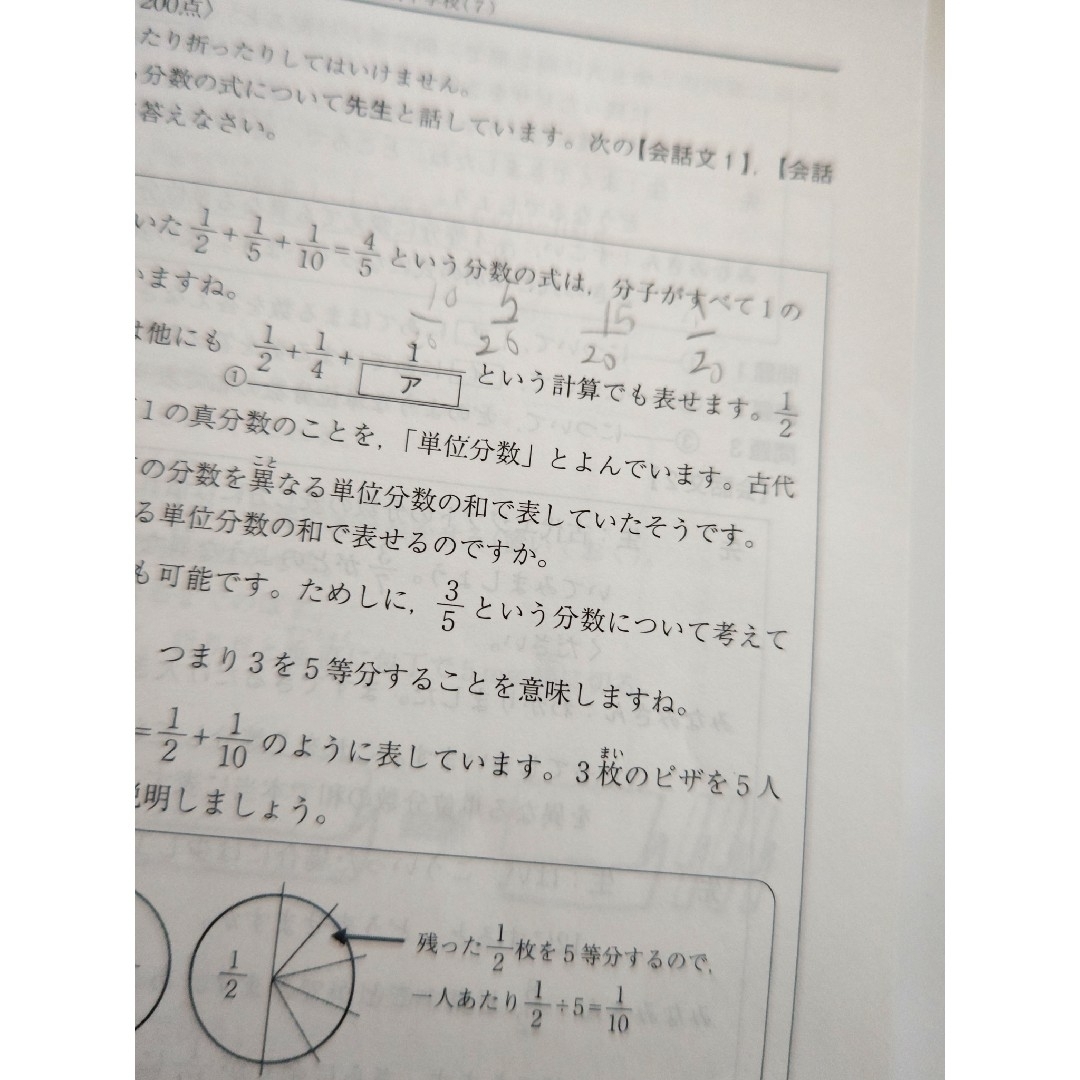 200点〉
たり折ったりしてはいけません。
分数の式について先生と話しています。次の【会話文1】,【会話
答えなさい。
いた 1/2 + 1/5 + 1/10 = 4/5 という分数の式は, 分子がすべて1の
いますね。
10 5/20 15/20 1/20
は他にも 1/2 + 1/4 + 1/ア という計算でも表せます。1/2
①
1の真分数のことを,「単位分数」とよんでいます。古代
の分数を異なる単位分数の和で表していたそうです。
こと
る単位分数の和で表せるのですか。
も可能です。ためしに, 3/5 という分数について考えて
つまり3を5等分することを意味しますね。
= 1/2 + 1/10 のように表しています。3枚のピザを5人
まい
説明しましょう。
1/2
残った 1/2 枚を5等分するので,
一人あたり 1/2 ÷5= 1/10